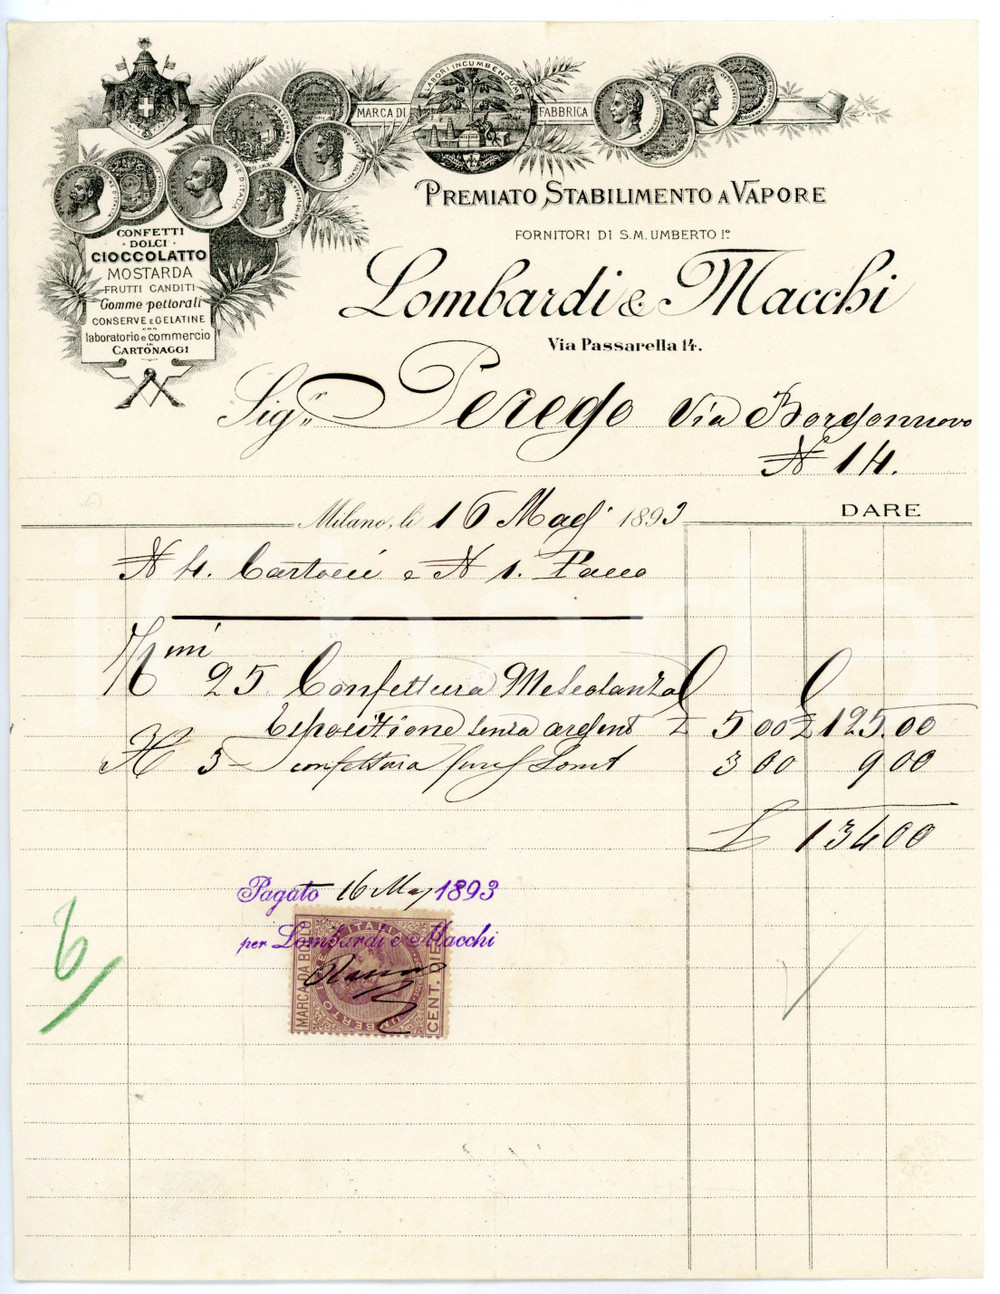 LABORI INCUMBENDUM
MARCA DI FABBRICA
PREMIATO STABILIMENTO A VAPORE
FORNITORI DI S.M. UMBERTO Iº
Lombardi & Macchi
Via Passarella 14.
CONFETTI
DOLCI
CIOCCOLATTO
MOSTARDA
FRUTTI CANDITI
Gomme pettorali
CONSERVE E GELATINE
CON
laboratorio e commercio
IN
CARTONAGGI
Sigr. Perego Via Borgonuovo
N 14.
Milano, li 16 Magº 1893
DARE
N 4. Cartocci e N 1. Pacco
25 Confettura Mescolanza
Esposizione senza argent £ 5 00 £ 125.00
3 confettura 3 00 9 00
£ 134 00
Pagato 16 Mag 1893
per Lombardi e Macchi
MARCA DA BOLLO
CENT. DIECI
UMBERTO
6